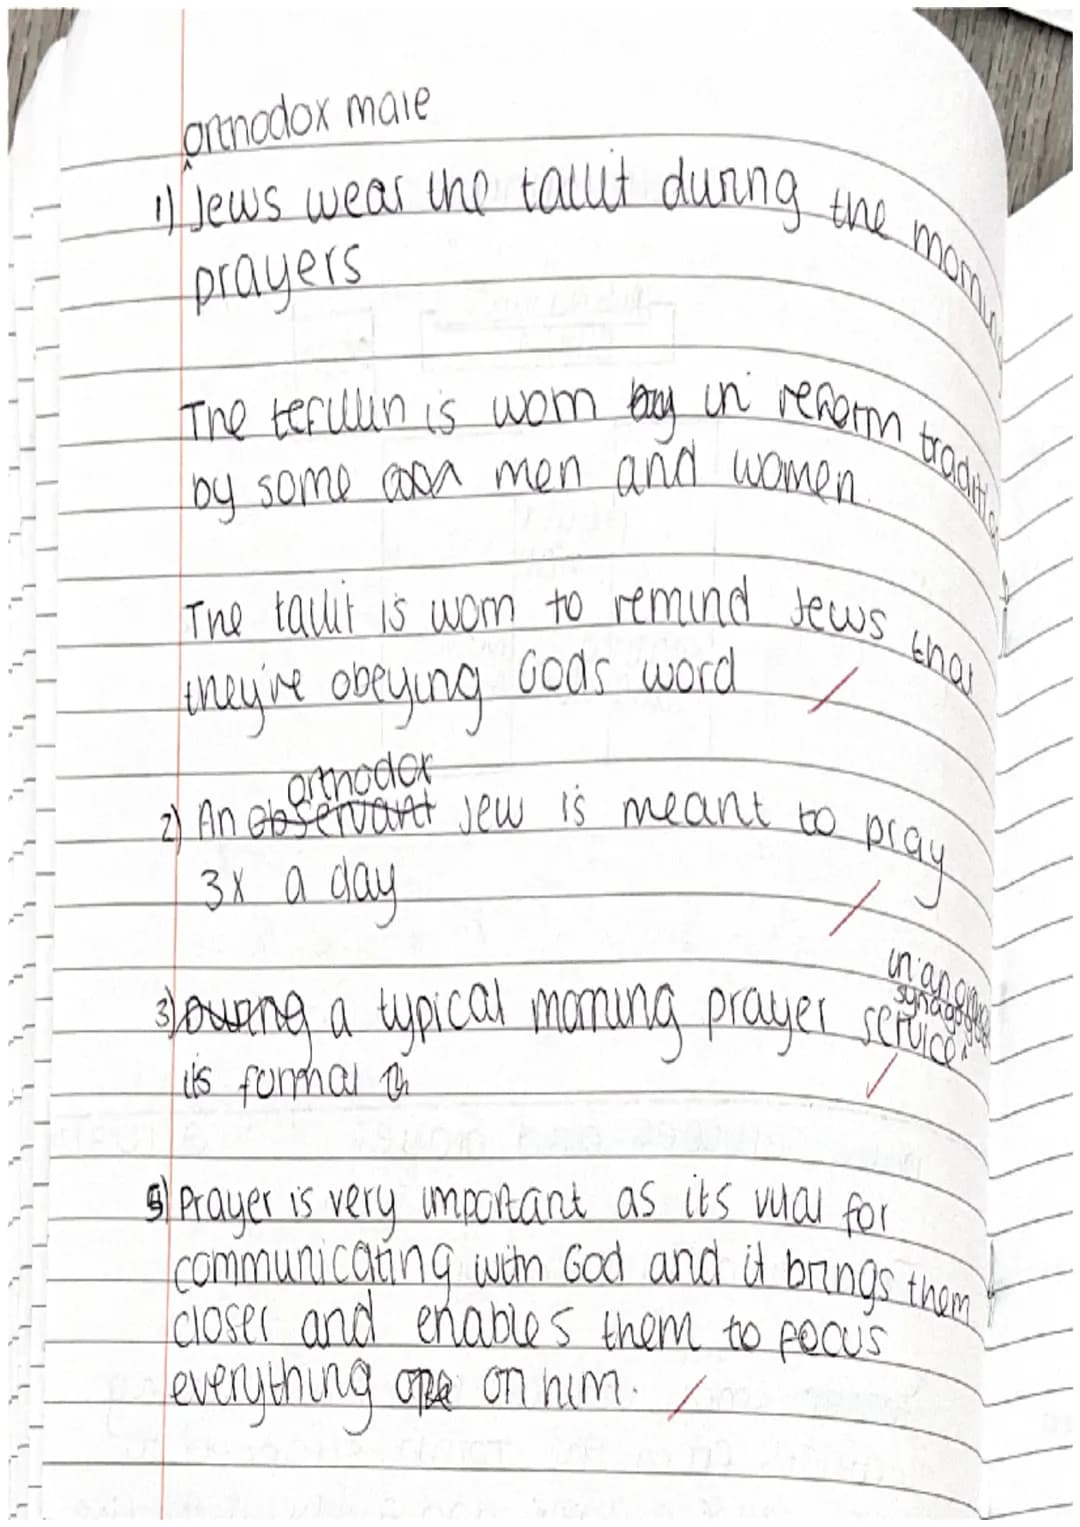 orthodox male
1) Jews wear the tallit during the morning
prayers
The tefillin is worn in reform tradition
by some men and women.
The tallit is worn to remind Jews that
they're obeying Gods word
orthodox
2) An observant Jew is meant to pray
3x a day
in an
synagogue
3) During a typical morning prayer service
its formal th
5) Prayer is very important as its vital for
communicating with God and it brings them
closer and enables them to focus
everything on him.